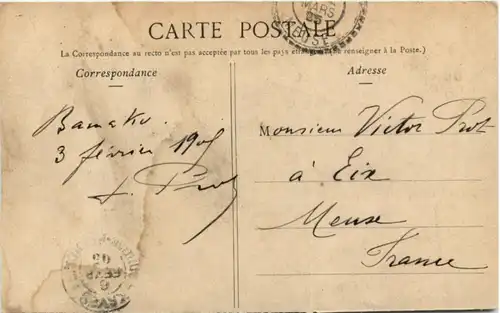 CARTE POSTALE
La Correspondance au recto n'est pas acceptée par tous les pays (se renseigner à la Poste.)
Correspondance
Adresse
Bamako.
3 février 1905
Monsieur Victor Prot
à Eix
Meuse
France
MARS
05
MEUSE